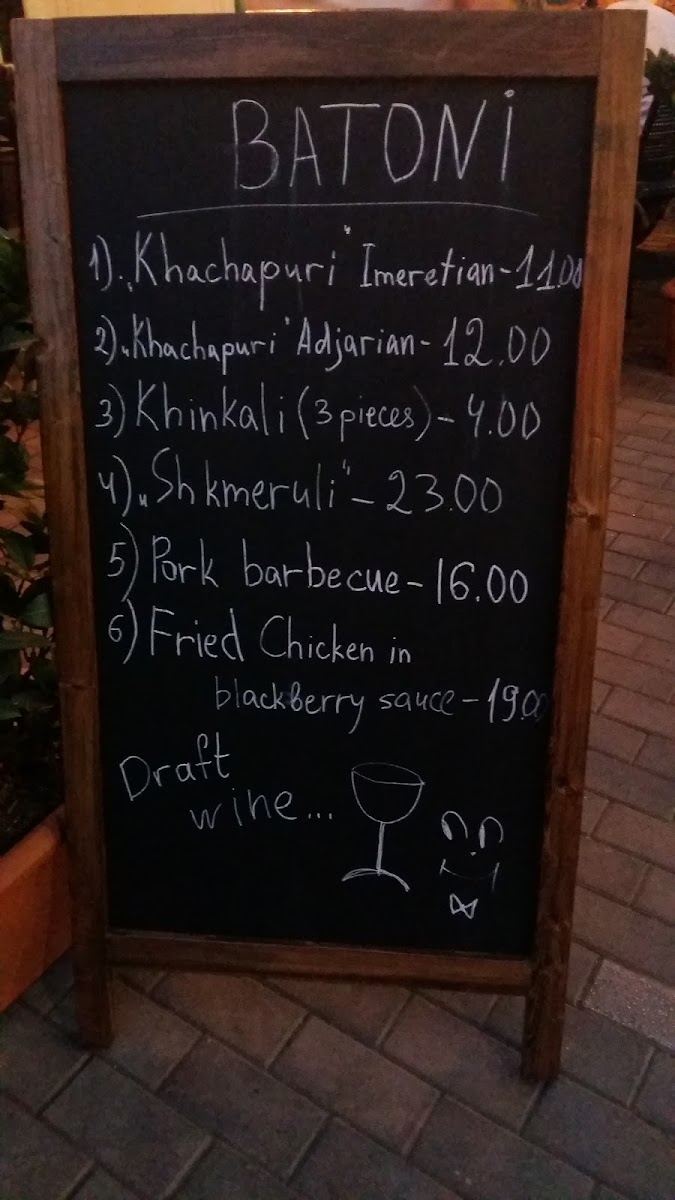 BATONi
1). „Khachapuri“ Imeretian-11.00
2) „Khachapuri“ Adjarian-12.00
3) Khinkali (3 pieces)-4.00
4) „Shkmeruli“-23.00
5) Pork barbecue-16.00
6) Fried Chicken in
blackberry sauce-19.00
Draft
wine...